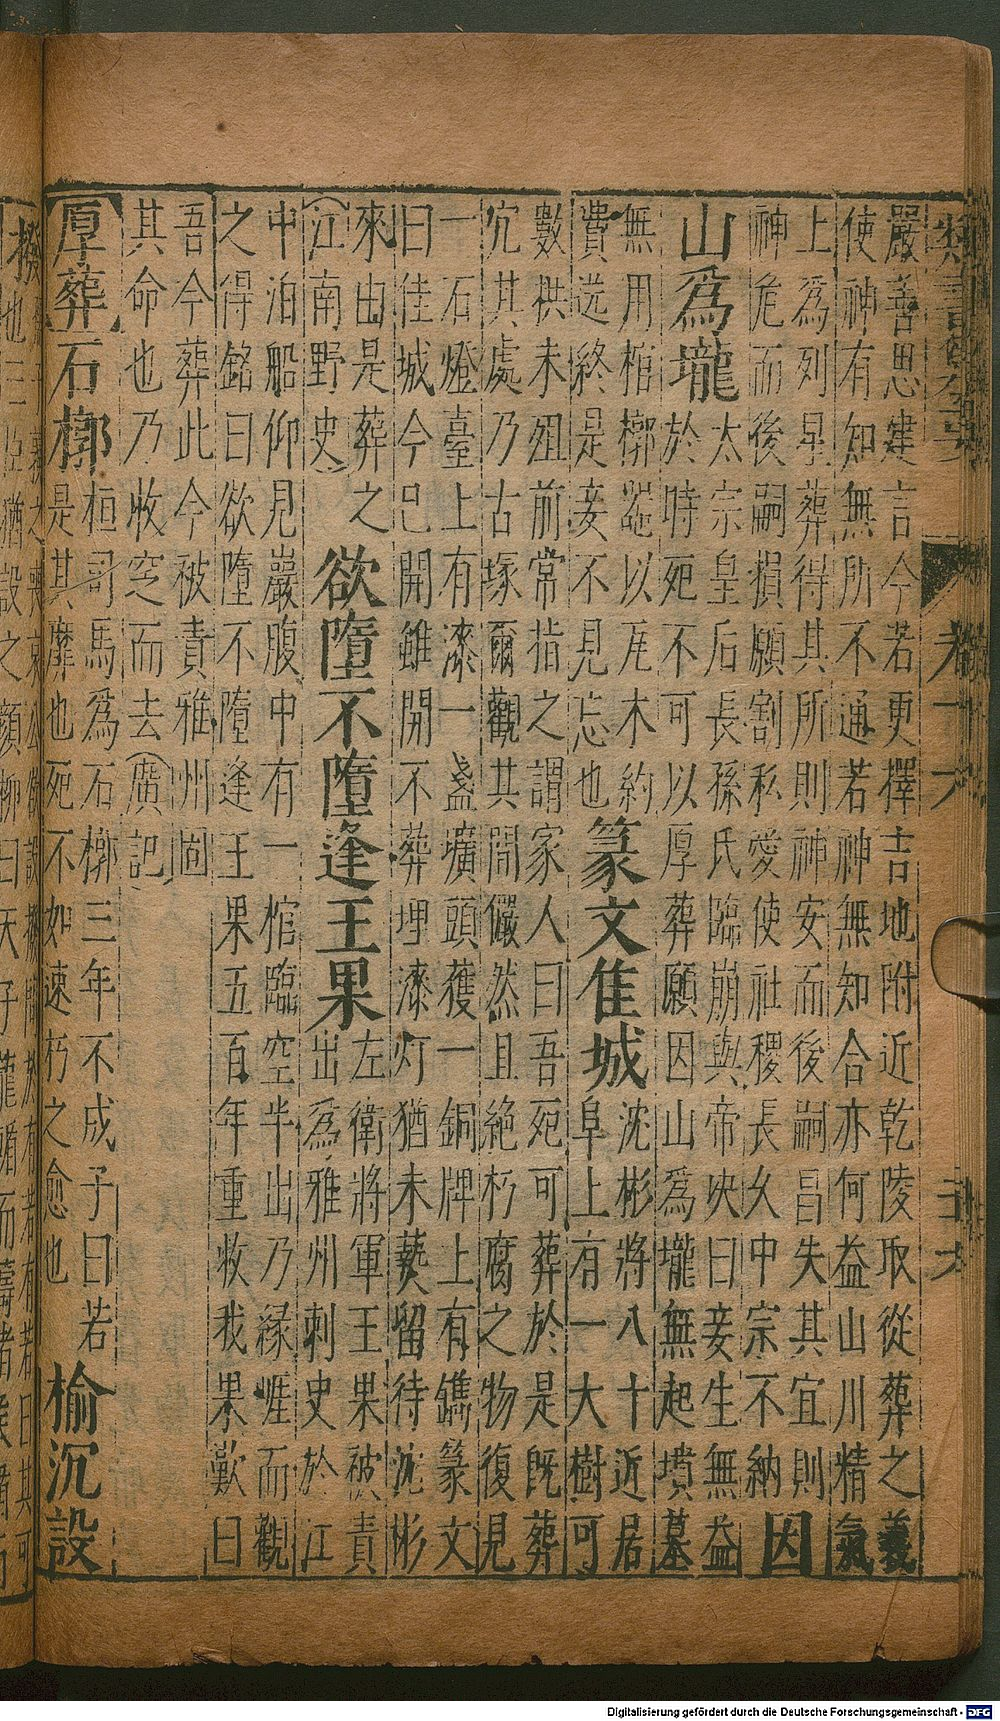 類書纂要 卷十六
嚴善思建言今若更擇吉地附近乾陵取從葬之義
使神有知無所不通若神無知合亦何益山川精氣
上爲列星葬得其所則神安而後嗣昌失其宜則
神危而後嗣損願割私愛使社稷長久中宗不納
因
山爲壠
太宗皇后長孫氏臨崩與帝央曰妾生無益
於時死不可以厚葬願因山爲壠無起墳墓
無用棺槨器以瓦木約
費送終是妾不見忘也
篆文隹城
沈彬將八十近居
阜上有一大樹可
數拱未殂前常指之謂家人曰吾死可葬於是既葬
穴其處乃古塚爾觀其間儼然且絕朽腐之物復見
一石燈臺上有漆一盞壙頭獲一銅牌上有鐫篆文
曰佳城今已開雖開不葬埋漆灯猶未爇留待沈彬
來由是葬之
(江南野史)
欲墮不墮逢王果
左衛將軍王果被責
出為雅州刺史於江
中泊船仰見巖腹中有一棺臨空半出乃緣崕而觀
之得銘曰欲墮不墮逢王果五百年重收我果歎曰
吾今葬此今被責雅州固
其命也乃收窆而去(廣記)
厚葬
石槨
桓司馬爲石槨三年不成子曰若
是其靡也死不如速朽之愈也
榆沉設
撥
也三臣猶設之顏柳曰天子龍輴而
Digitalisierung gefördert durch die Deutsche Forschungsgemeinschaft - DFG